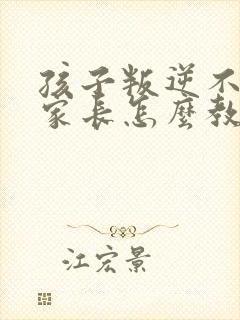 孩子叛逆不
家长怎麽教
江宏景